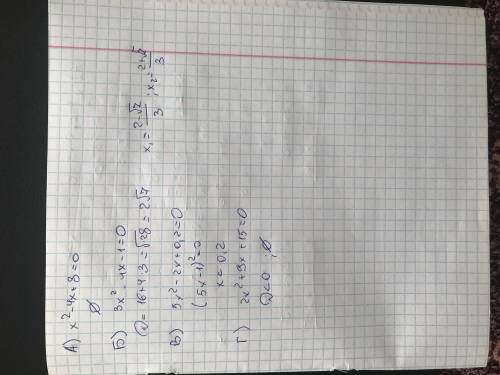 А) x²-4x+8=0
∅
Б) 3x² 4x-1=0
D=16+4·3=√28=2√7 x₁=2-√7/3; x₂=2+√7/3
В) 5x²-2x+0,2=0
(5x-1)²=0
x=0,2
Г) 2x²+9x+15=0
D<0; ∅